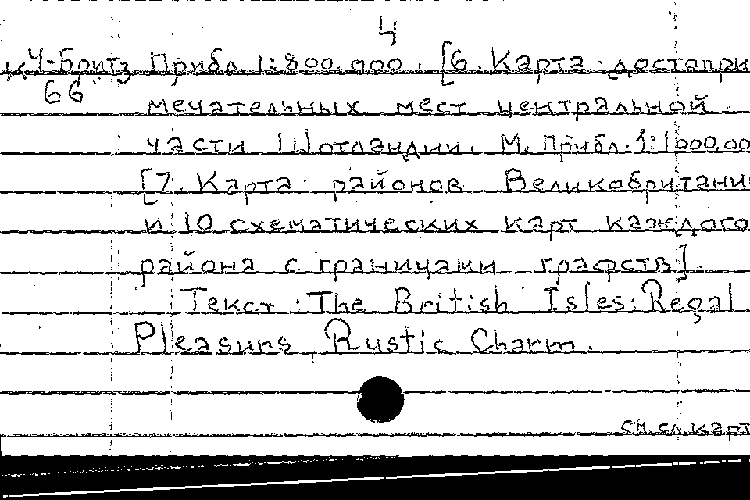 4
к4-Брит Прибл 1:800.000. [6. Карта достапри
66
мечательных мест центральной
части Шотландии. М. Прибл. 1:1000,00
[7. Карта районов Великобритани
и 10 схематических карт каждого
района с границами графств].
Текст: The British Isles: Regal
Pleasuns Rustic Charm.
см.сл.карт